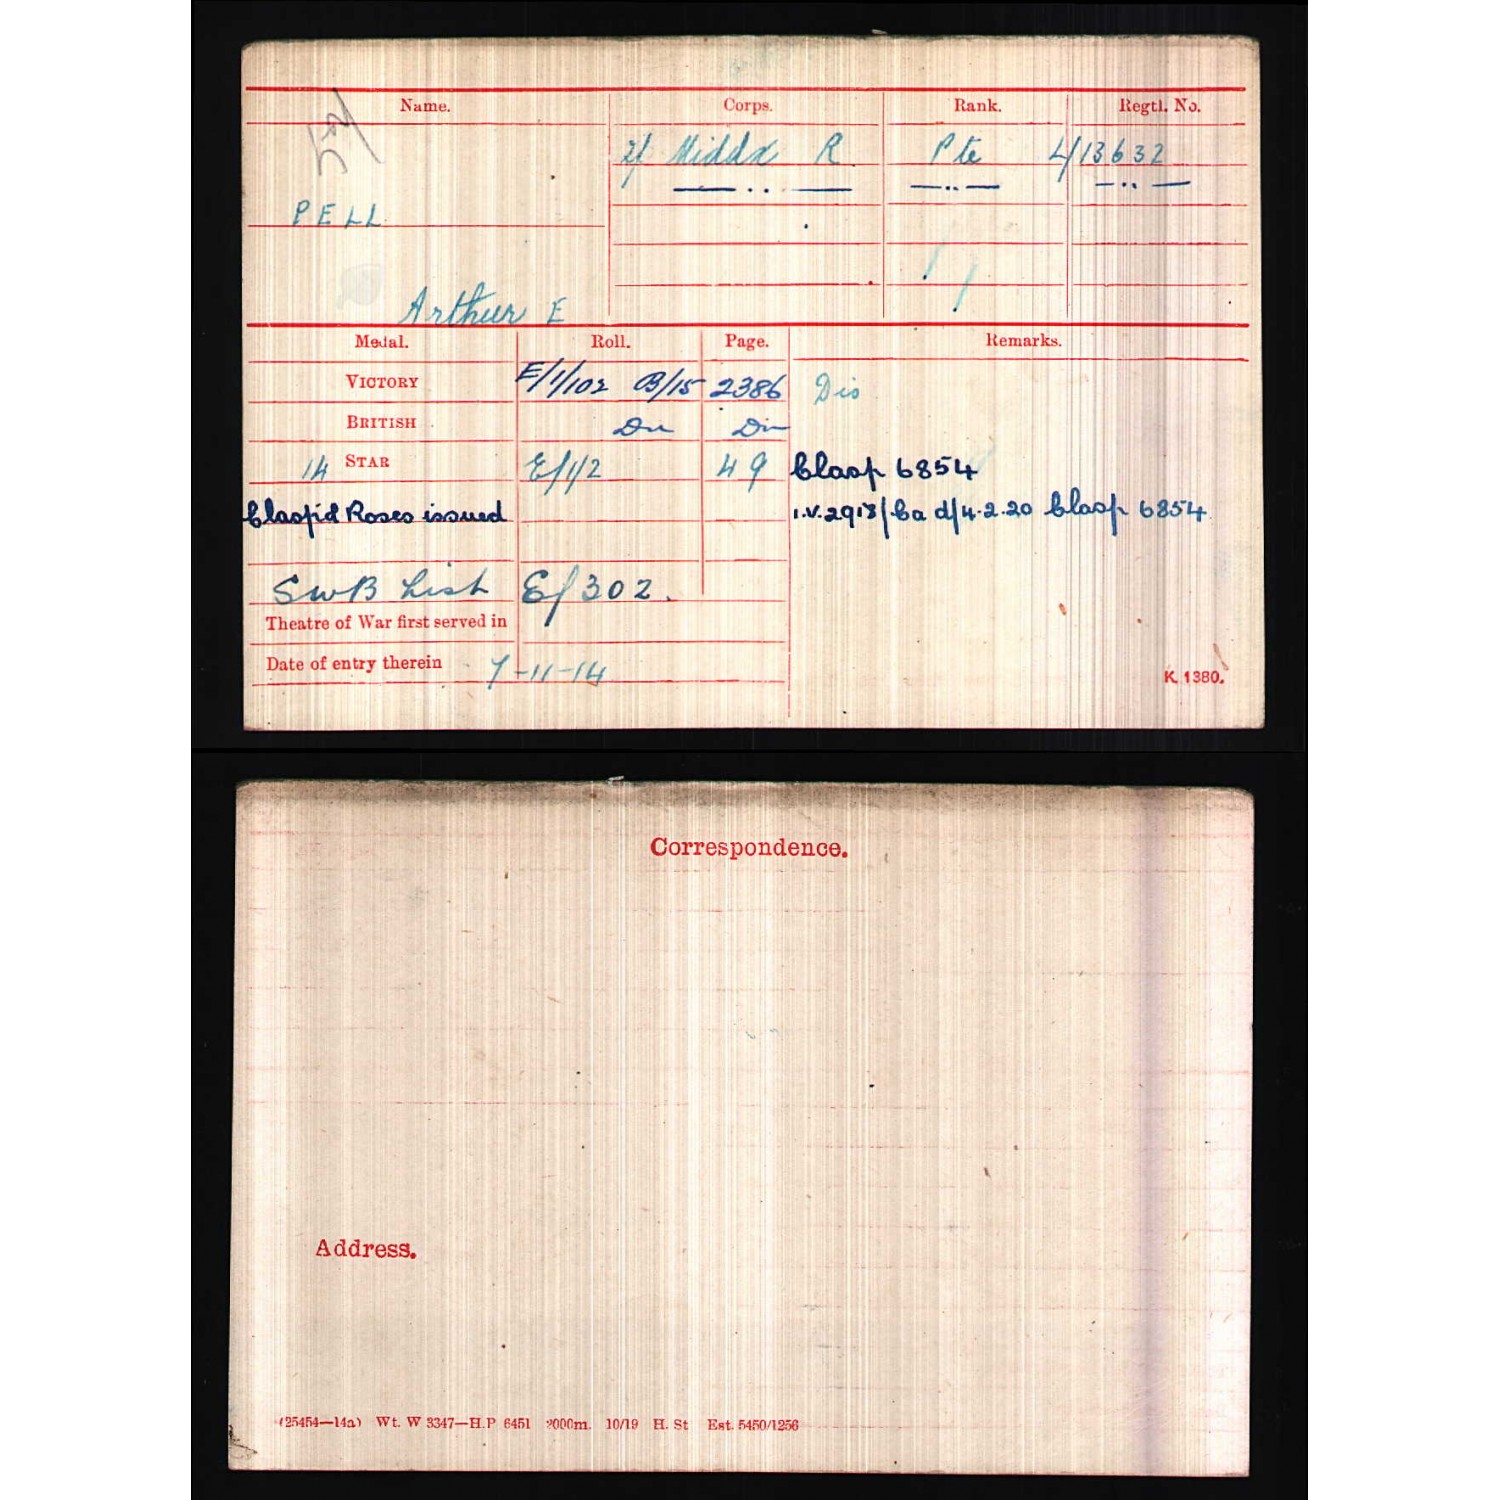 Name. Corps. Rank. Regtl. No.
2/ Middx R Pte L/13632
— .. — — .. — — .. —
PELL
Arthur E
Medal. Roll. Page. Remarks.
VICTORY E/1/102 B/15 2386 Dis
BRITISH Do Do
14 STAR E/1/2 49 Clasp 6854
Clasp & Roses issued I.V. 2913/Ba d/4.2.20 Clasp 6854
SWB List E/302.
Theatre of War first served in
Date of entry therein 7-11-14
K. 1380.
Correspondence.
Address.
(25454—14a) Wt. W 3347—H.P 6451 2000m. 10/19 H. St Est. 5450/1256